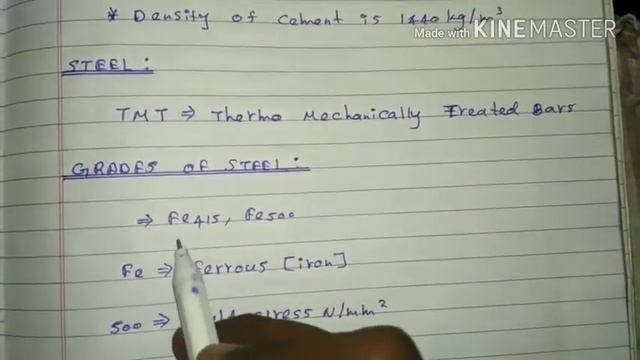 * Density of cement is 1440 kg/m³
Made with KINEMASTER
STEEL:
TMT ⇒ Thermo Mechanically Treated Bars
GRADES OF STEEL:
⇒ Fe415, Fe500
Fe ⇒ Ferrous [iron]
500 ⇒ stress N/mm²